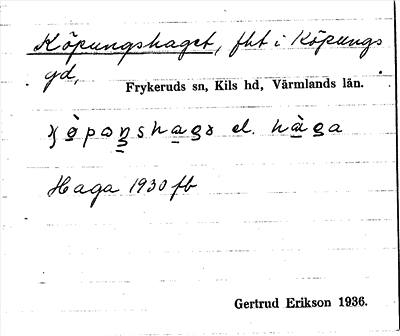 Köpungshaget, fht i Köpungs
yd,
Frykeruds sn, Kils hd, Värmlands län.
el.
Haga 1930 fb
Gertrud Erikson 1936.